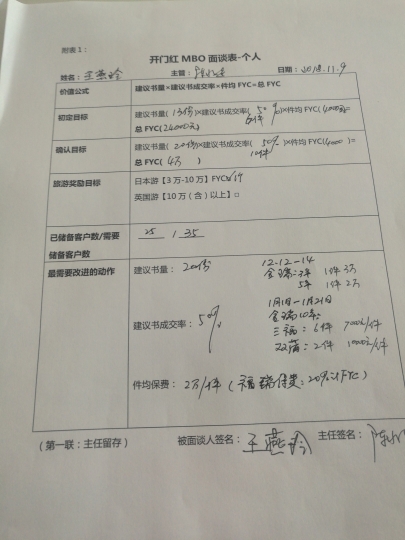 附表1：
开门红 MBO 面谈表-个人
姓名：王燕玲 主管： 日期：2018.11.9
价值公式 建议书量×建议书成交率×件均 FYC=总 FYC
初定目标 建议书量(13份)×建议书成交率(50%)×件均 FYC(4000元)=
6件
总 FYC(24000元)
确认目标 建议书量(20份)×建议书成交率(50%)×件均 FYC(4000)=
10件
总 FYC(4万)
旅游奖励目标 日本游【3 万-10 万】FYC
英国游【10 万（含）以上】□
已储备客户数/需要
储备客户数 25 / 35
最需要改进的动作 建议书量：20份
12.12-14
金瑞：3年 1件 3万
5年 1件 2万
1月1日-1月21日
金瑞10年：
建议书成交率：50%
三福：6件 7000元/件
2件 10000元/件
件均保费：2万/件（福 20% FYC）
（第一联：主任留存） 被面谈人签名：王燕玲 主任签名：